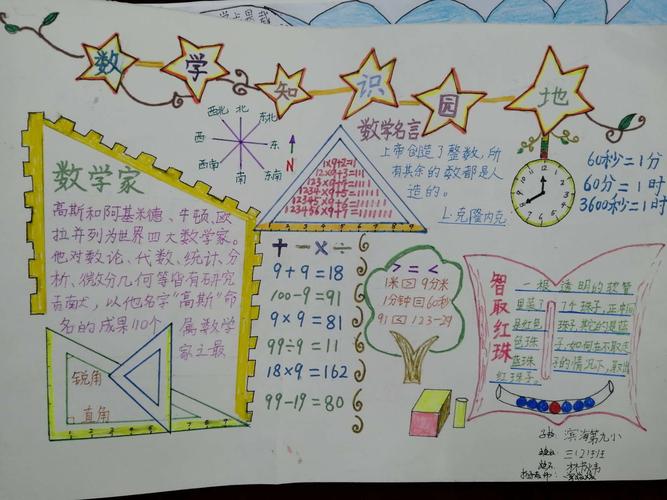 数学知识园地
西北 北 东北
西 东
西南 南 东南
N
数学家
高斯和阿基米德、牛顿、欧
拉并列为世界四大数学家。
他对数论、代数、统计、分
析、微分几何等皆有研究
贡献,以他名字"高斯"命
名的成果110个 属数学
家之最
锐角
直角
1×9+2=11
12×9+3=111
123×9+4=1111
1234×9+5=11111
12345×9+6=111111
123456×9+7=1111111
数学名言
上帝创造了整数,所
有其余的数都是人
造的。
L·克隆内克
60秒=1分
60分=1时
3600秒=1时
+ - × ÷
9+9=18
100-9=91
9×9=81
99÷9=11
18×9=162
99-19=80
> = <
1米 9分米
1分钟 60秒
91 123-29
智取红珠
一根透明的软管
里装了 个珠子,正中间
是红色 珠子,其它的是蓝
色珠 子,如何在不取走
蓝珠 子的情况下,取出
红珠子。
滨海第九小